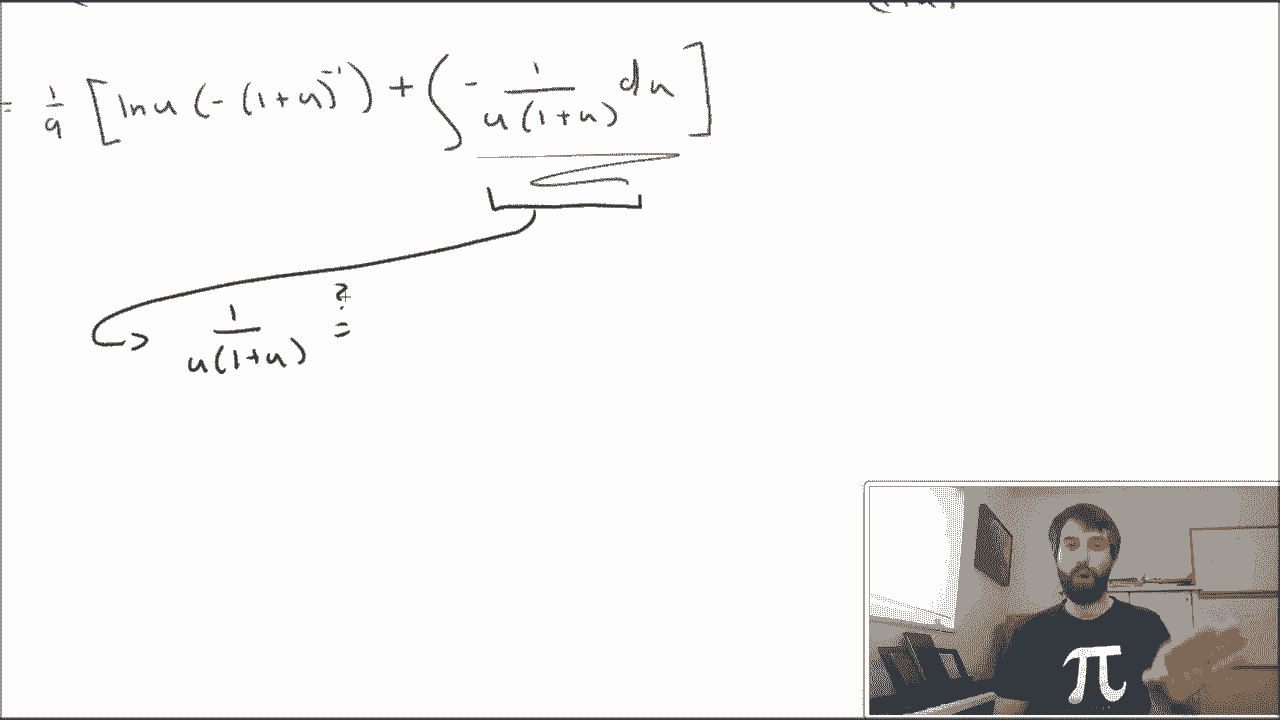 = 1/9 [ln u (-(1+u)^-1) + ∫ - 1/(u(1+u)) du]
1/(u(1+u)) ?=
π